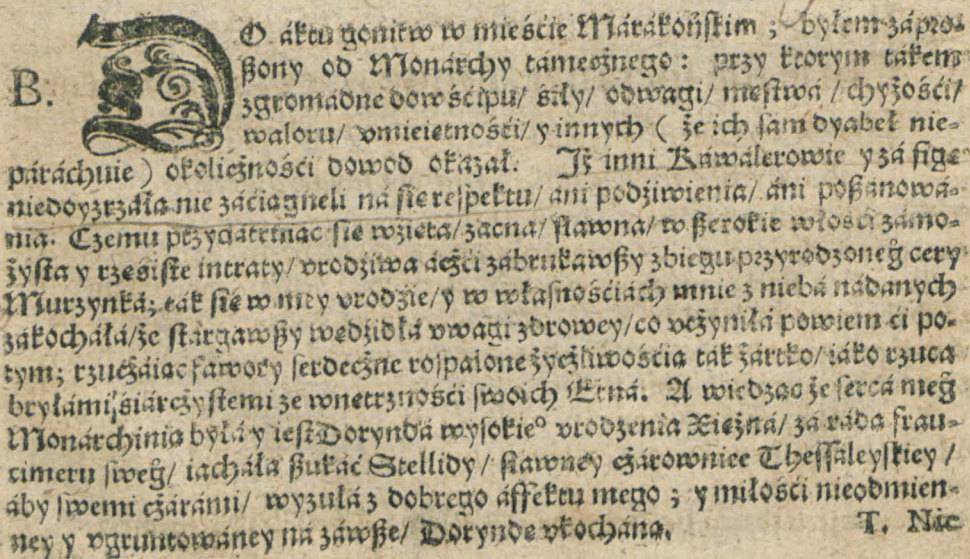 B. DO áktu gonitw w mieście Márákońskim ; byłem záproszony od Monárchy támecżnego : przy ktorym tákem
zgromádne dowścipu/ śiły/ odwagi/ mestwá /chyżośći/
waloru/ vmieietnośći/ y innych ( że ich sam dyabeł nie-
páráchuie ) okolicżnośći dowod okazał. Jż inni Káwálerowie y zá figę
niedoyzrzáłą nie záciągneli ná się respektu/ áni podźiwienia/ áni poszánowá-
nia. Czemu przypátruiąc się wzięta/ zacna/ sławna/ w szerokie włośći zámo-
żysta y rzęsiste intraty/ vrodźiwa ácżći zábrukawszy zbiegu przyrodzoneg̃ cery
Murzynká; ták się w mey vrodźie/ y w własnośćiách mnie z niebá nádánych
zákocháłá/ że stárgawszy wędźidłá vwagi zdrowey/ co vcżyniłá powiem ći po-
tym; rzucáiąc fawory serdecżne rospalone życżliwośćią ták żártko/ iáko rzuca
bryłámi śiárcżystemi ze wnętrznośći swoich Etná. A wiedząc że sercá meg̃
Monárchinią byłá y iest Doryndá wysokie° vrodzenia Xiężná/ zá rádą frau-
cimeru sweg̃/ iácháłá szukáć Stellidy / sławney cżárownice Thessáleyskiey /
áby swemi cżárámi/ wyzułá z dobrego áffektu mego ; y miłośći nieodmien-
ney y vgruntowáney ná záwsze/ Doryndę vkocháną. T. Nic